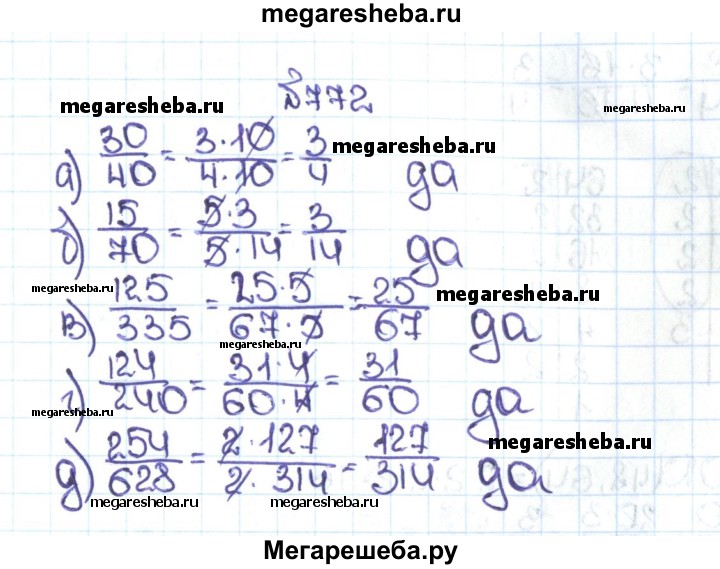 megaresheba.ru
№772
megaresheba.ru
а) 30/40 = 3·10/4·10 = 3/4 да
megaresheba.ru
б) 15/70 = 5·3/5·14 = 3/14 да
megaresheba.ru
в) 125/335 = 25·5/67·5 = 25/67 да
megaresheba.ru
megaresheba.ru
г) 124/240 = 31·4/60·4 = 31/60 да
megaresheba.ru
д) 254/628 = 2·127/2·314 = 127/314 да
megaresheba.ru
megaresheba.ru
megaresheba.ru
Мегарешеба.ру